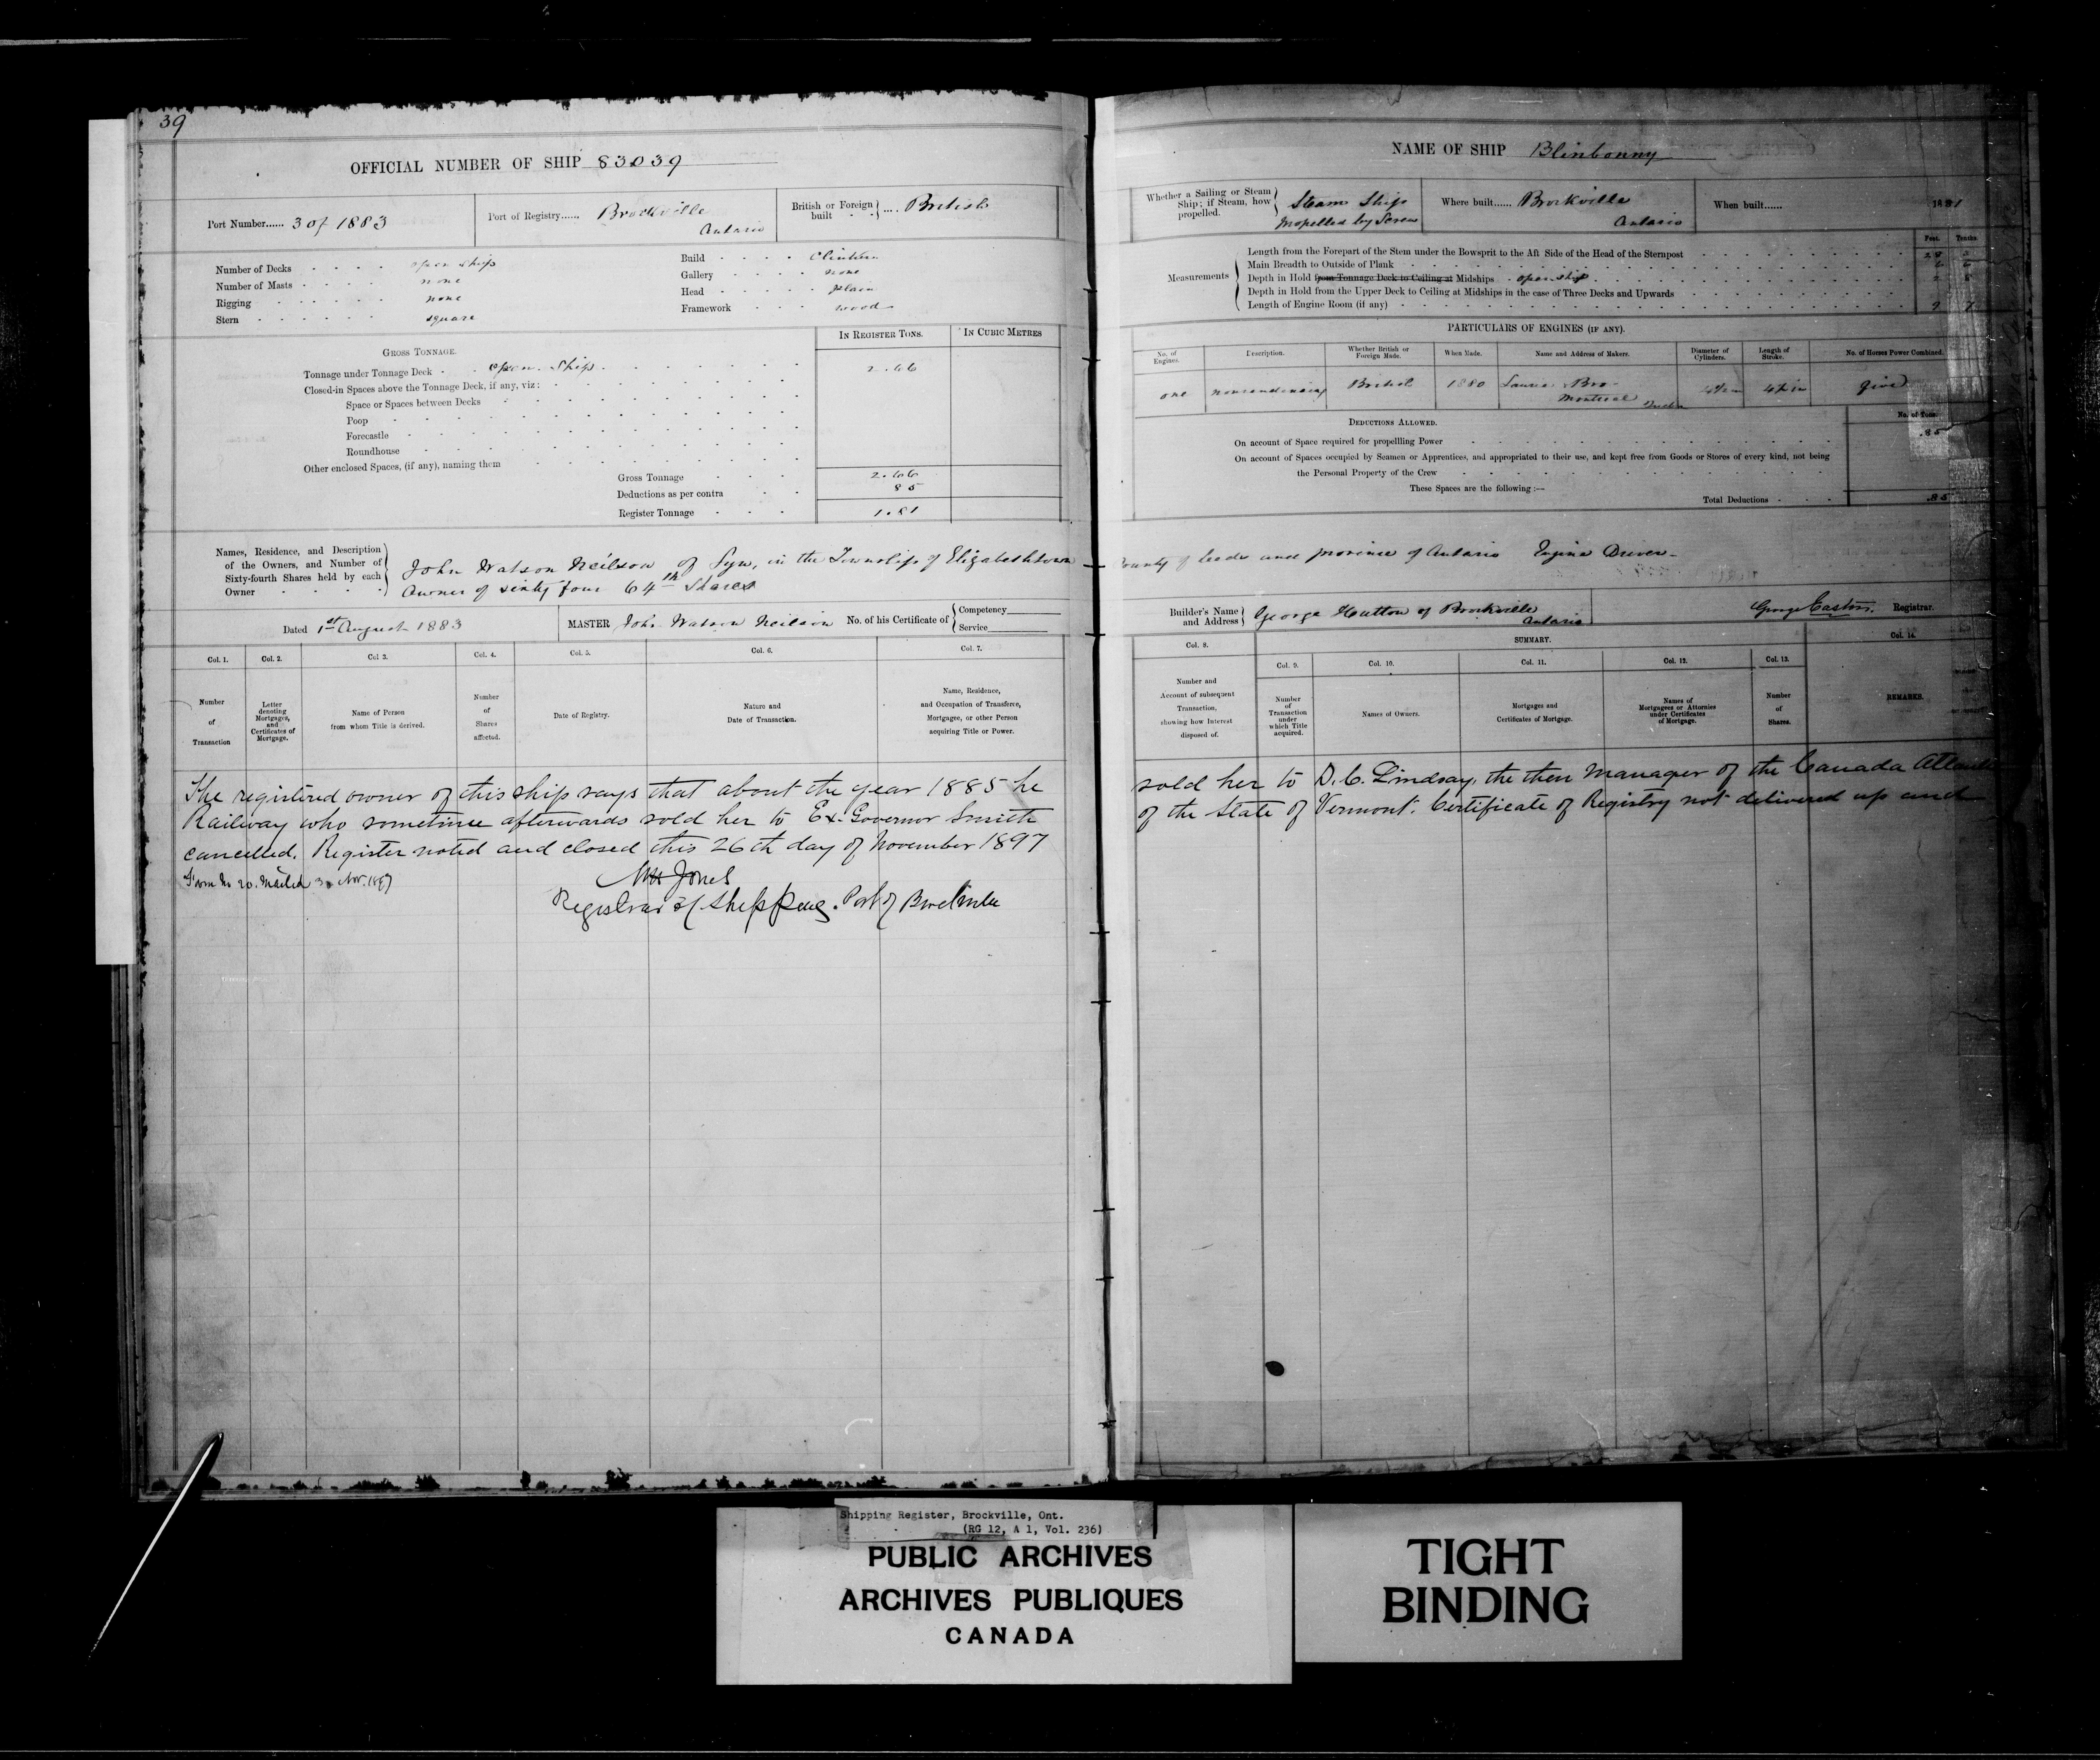 39
OFFICIAL NUMBER OF SHIP 83039
Port Number...... 3 of 1883
Port of Registry...... Brockville
Ontario
British or Foreign built .... British
Number of Decks open ship
Number of Masts none
Rigging none
Stern square
Build
Gallery none
Head plain
Framework wood
IN REGISTER TONS.
IN CUBIC METRES
GROSS TONNAGE.
Tonnage under Tonnage Deck open Ship 2.66
Closed-in Spaces above the Tonnage Deck, if any, viz:
Space or Spaces between Decks
Poop
Forecastle
Roundhouse
Other enclosed Spaces, (if any), naming them
Gross Tonnage 2.66
Deductions as per contra 85
Register Tonnage 1.81
Names, Residence, and Description
of the Owners, and Number of
Sixty-fourth Shares held by each
Owner
John Watson Neilson of Lyn, in the Township of Elizabethtown
Owner of sixty four 64th Shares
Dated 1st August 1883
MASTER John Watson Neilson No. of his Certificate of
Competency
Service
Col. 1.
Col. 2.
Col 3.
Col. 4.
Col. 5.
Col. 6.
Col. 7.
Number
of
Transaction
Letter
denoting
Mortgages,
and
Certificates of
Mortgage.
Name of Person
from whom Title is derived.
Number
of
Shares
affected.
Date of Registry.
Nature and
Date of Transaction.
Name, Residence,
and Occupation of Transferee,
Mortgagee, or other Person
acquiring Title or Power.
The registered owner of this ship says that about the year 1885 he
Railway who sometime afterwards sold her to Ex-Governor Smith
cancelled. Register noted and closed this 26th day of November 1897
Form No 20. Mailed 30 Nov. 1897
Jones
Registrar of Shipping. Port of Brockville
NAME OF SHIP Blinbonny
Whether a Sailing or Steam
Ship; if Steam, how
propelled.
Steam Ship
Propelled by Screw
Where built...... Brockville
Ontario
When built...... 1881
Feet. Tenths.
Measurements
Length from the Forepart of the Stem under the Bowsprit to the Aft Side of the Head of the Sternpost
Main Breadth to Outside of Plank
Depth in Hold from Tonnage Deck to Ceiling at Midships open ship
Depth in Hold from the Upper Deck to Ceiling at Midships in the case of Three Decks and Upwards
Length of Engine Room (if any)
PARTICULARS OF ENGINES (IF ANY).
No. of
Engines.
Description.
Whether British or
Foreign Made.
When Made.
Name and Address of Makers.
Diameter of
Cylinders.
Length of
Stroke.
No. of Horses Power Combined.
one
British
1880
Bro
Montreal
five
DEDUCTIONS ALLOWED.
No. of Tons.
On account of Space required for propellling Power .85
On account of Spaces occupied by Seamen or Apprentices, and appropriated to their use, and kept free from Goods or Stores of every kind, not being
the Personal Property of the Crew
These Spaces are the following :—
Total Deductions .85
County of Leeds and province of Ontario Engine Driver
Builder's Name
and Address
George Hutton of Brockville
Ontario
George Easton. Registrar.
Col. 8.
SUMMARY.
Col. 14.
Col. 9.
Col. 10.
Col. 11.
Col. 12.
Col. 13.
Number and
Account of subsequent
Transaction,
showing how Interest
disposed of.
Number
of
Transaction
under
which Title
acquired.
Names of Owners.
Mortgages and
Certificates of Mortgage.
Names of
Mortgagees or Attornies
under Certificates
of Mortgage.
Number
of
Shares.
REMARKS.
sold her to D. C. Lindsay, the then Manager of the Canada Atlantic
of the State of Vermont. Certificate of Registry not delivered up and
Shipping Register, Brockville, Ont.
(RG 12, A 1, Vol. 236)
PUBLIC ARCHIVES
ARCHIVES PUBLIQUES
CANADA
TIGHT
BINDING